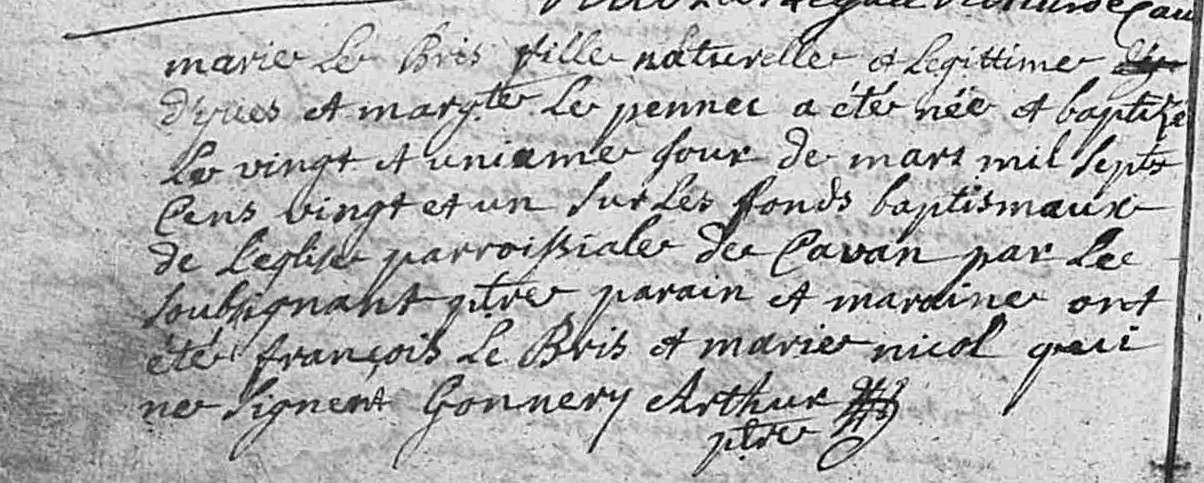 marie Le Bris fille naturelle et Legittime
d'yves et margte Le pennec a été née et baptizé
Le vingt et unieme jour de mars mil septs
Cens vingt et un sur Les fonds baptismaux
de Leglise parroissiale de Cavan par Le
soubsignant ptre parain et maraine ont
été françois Le Bris et marie nicol qui
ne signent Gonnery Arthur
ptre